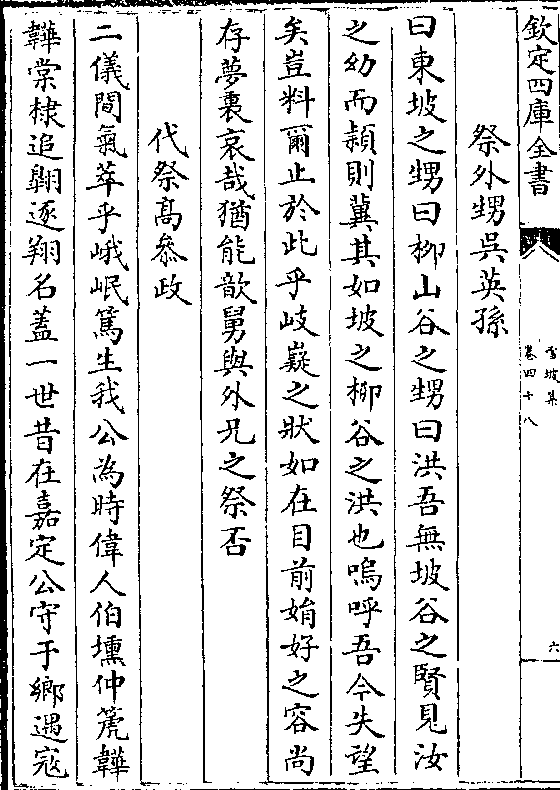 欽定四庫全書
雪坡集
卷四十八
六
祭外甥吳英孫
曰東坡之甥曰栁山谷之甥曰洪吾無坡谷之賢見汝
之幼而頴則冀其如坡之栁谷之洪也嗚呼吾今失望
矣豈料爾止於此乎岐嶷之狀如在目前姢好之容尚
存夢裏哀哉猶能歆舅與外兄之祭否
代祭髙叅政
二儀間氣萃乎峨岷篤生我公為時偉人伯壎仲箎韡
韡棠棣追翺逐翔名蓋一世昔在嘉定公守于鄉遇寇